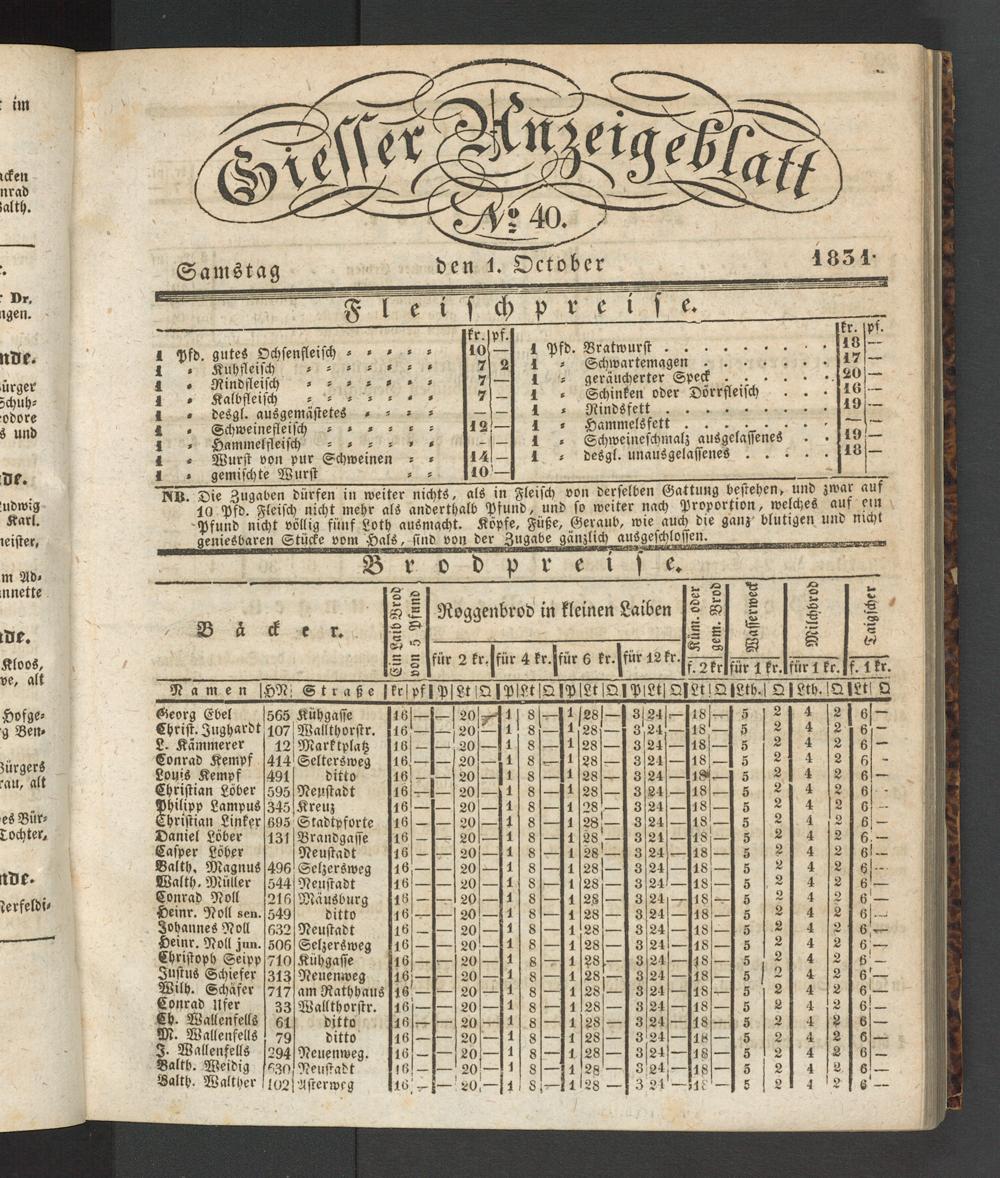 t im
acken
nrad
Balth.
r.
r Dr.
ngen.
nde.
Bürger
Schuh-
eodore
s und
nde.
Ludwig
Karl.
meister,
m Ad-
annette
nde.
Kloos,
we, alt
Hofge-
rg Ben-
Bürgers
rau, alt
es Bür-
Tochter,
nde.
Nerfeldi-
Giesser Anzeigeblatt
No 40.
Samstag den 1. October 1831.
Fleischpreise.
kr. pf. kr. pf.
1 Pfd. gutes Ochsenfleisch 10 — 1 Pfd. Bratwurst 18 —
1 = Kuhfleisch 7 2 1 = Schwartemagen 17 —
1 = Rindfleisch 7 — 1 = geräucherter Speck 20 —
1 = Kalbfleisch 7 — 1 = Schinken oder Dörrfleisch 16 —
1 = desgl. ausgemästetes — 1 = Rindsfett 19 —
1 = Schweinefleisch 12 — 1 = Hammelsfett
1 = Hammelfleisch - - 1 = Schweineschmalz ausgelassenes 19 —
1 = Wurst von pur Schweinen 14 — 1 = desgl. unausgelassenes 18 —
1 = gemischte Wurst 10
NB. Die Zugaben dürfen in weiter nichts, als in Fleisch von derselben Gattung bestehen, und zwar auf
10 Pfd. Fleisch nicht mehr als anderthalb Pfund, und so weiter nach Proportion, welches auf ein
Pfund nicht völlig fünf Loth ausmacht. Köpfe, Füße, Geraub, wie auch die ganz blutigen und nicht
geniesbaren Stücke vom Hals, sind von der Zugabe gänzlich ausgeschlossen.
Brodpreise.
Bäcker. Ein Laib Brod von 5 Pfund Roggenbrod in kleinen Laiben Küm. oder gem. Brod Wasserweck Milchbrod Taigscher
für 2 kr. für 4 kr. für 6 kr. für 12 kr. f. 2 kr für 1 kr. für 1 kr. f. 1 kr.
Namen HN Straße kr pf P Lt Q P Lt Q P Lt Q P Lt Q Lt Q Lth. Q Lth. Q Lt Q
Georg Ebel 565 Kühgasse 16 — — 20 — 1 8 — 1 28 — 3 24 — 18 — 5 2 4 2 6 —
Christ. Jughardt 107 Wallthorstr. 16 — — 20 — 1 8 — 1 28 — 3 24 — 18 — 5 2 4 2 6 —
L. Kämmerer 12 Marktplatz 16 — — 20 — 1 8 — 1 28 — 3 24 — 18 — 5 2 4 2 6 —
Conrad Kempf 414 Seltersweg 16 — — 20 — 1 8 — 1 28 — 3 24 — 18 — 5 2 4 2 6 —
Louis Kempf 491 ditto 16 — — 20 — 1 8 — 1 28 — 3 24 — 18 — 5 2 4 2 6 —
Christian Löber 595 Neustadt 16 — — 20 — 1 8 — 1 28 — 3 24 — 18 — 5 2 4 2 6 —
Philipp Lampus 345 Kreuz 16 — — 20 — 1 8 — 1 28 — 3 24 — 18 — 5 2 4 2 6 —
Christian Linker 695 Stadtpforte 16 — — 20 — 1 8 — 1 28 — 3 24 — 18 — 5 2 4 2 6 —
Daniel Löber 131 Brandgasse 16 — — 20 — 1 8 — 1 28 — 3 24 — 18 — 5 2 4 2 6 —
Casper Löber Neustadt 16 — — 20 — 1 8 — 1 28 — 3 24 — 18 — 5 2 4 2 6 —
Balth. Magnus 496 Selzersweg 16 — — 20 — 1 8 — 1 28 — 3 24 — 18 — 5 2 4 2 6 —
Walth. Müller 544 Neustadt 16 — — 20 — 1 8 — 1 28 — 3 24 — 18 — 5 2 4 2 6 —
Conrad Noll 216 Mäusburg 16 — — 20 — 1 8 — 1 28 — 3 24 — 18 — 5 2 4 2 6 —
Heinr. Noll sen. 549 ditto 16 — — 20 — 1 8 — 1 28 — 3 24 — 18 — 5 2 4 2 6 —
Johannes Noll 632 Neustadt 16 — — 20 — 1 8 — 1 28 — 3 24 — 18 — 5 2 4 2 6 —
Heinr. Noll jun. 506 Selzersweg 16 — — 20 — 1 8 — 1 28 — 3 24 — 18 — 5 2 4 2 6 —
Christoph Seipp 710 Kühgasse 16 — — 20 — 1 8 — 1 28 — 3 24 — 18 — 5 2 4 2 6 —
Justus Schiefer 313 Neuenweg 16 — — 20 — 1 8 — 1 28 — 3 24 — 18 — 5 2 4 2 6 —
Wilh. Schäfer 717 am Rathhaus 16 — — 20 — 1 8 — 1 28 — 3 24 — 18 — 5 2 4 2 6 —
Conrad Ufer 33 Wallthorstr. 16 — — 20 — 1 8 — 1 28 — 3 24 — 18 — 5 2 4 2 6 —
Ch. Wallenfells 61 ditto 16 — — 20 — 1 8 — 1 28 — 3 24 — 18 — 5 2 4 2 6 —
M. Wallenfells 79 ditto 16 — — 20 — 1 8 — 1 28 — 3 24 — 18 — 5 2 4 2 6 —
J. Wallenfells 294 Neuenweg. 16 — — 20 — 1 8 — 1 28 — 3 24 — 18 — 5 2 4 2 6 —
Balth. Weidig 630 Neustadt 16 — — 20 — 1 8 — 1 28 — 3 24 — 18 — 5 2 4 2 6 —
Balth. Walther 102 Asterweg 16 — — 20 — 1 8 — 1 28 — 3 24 — 18 — 5 2 4 2 6 —